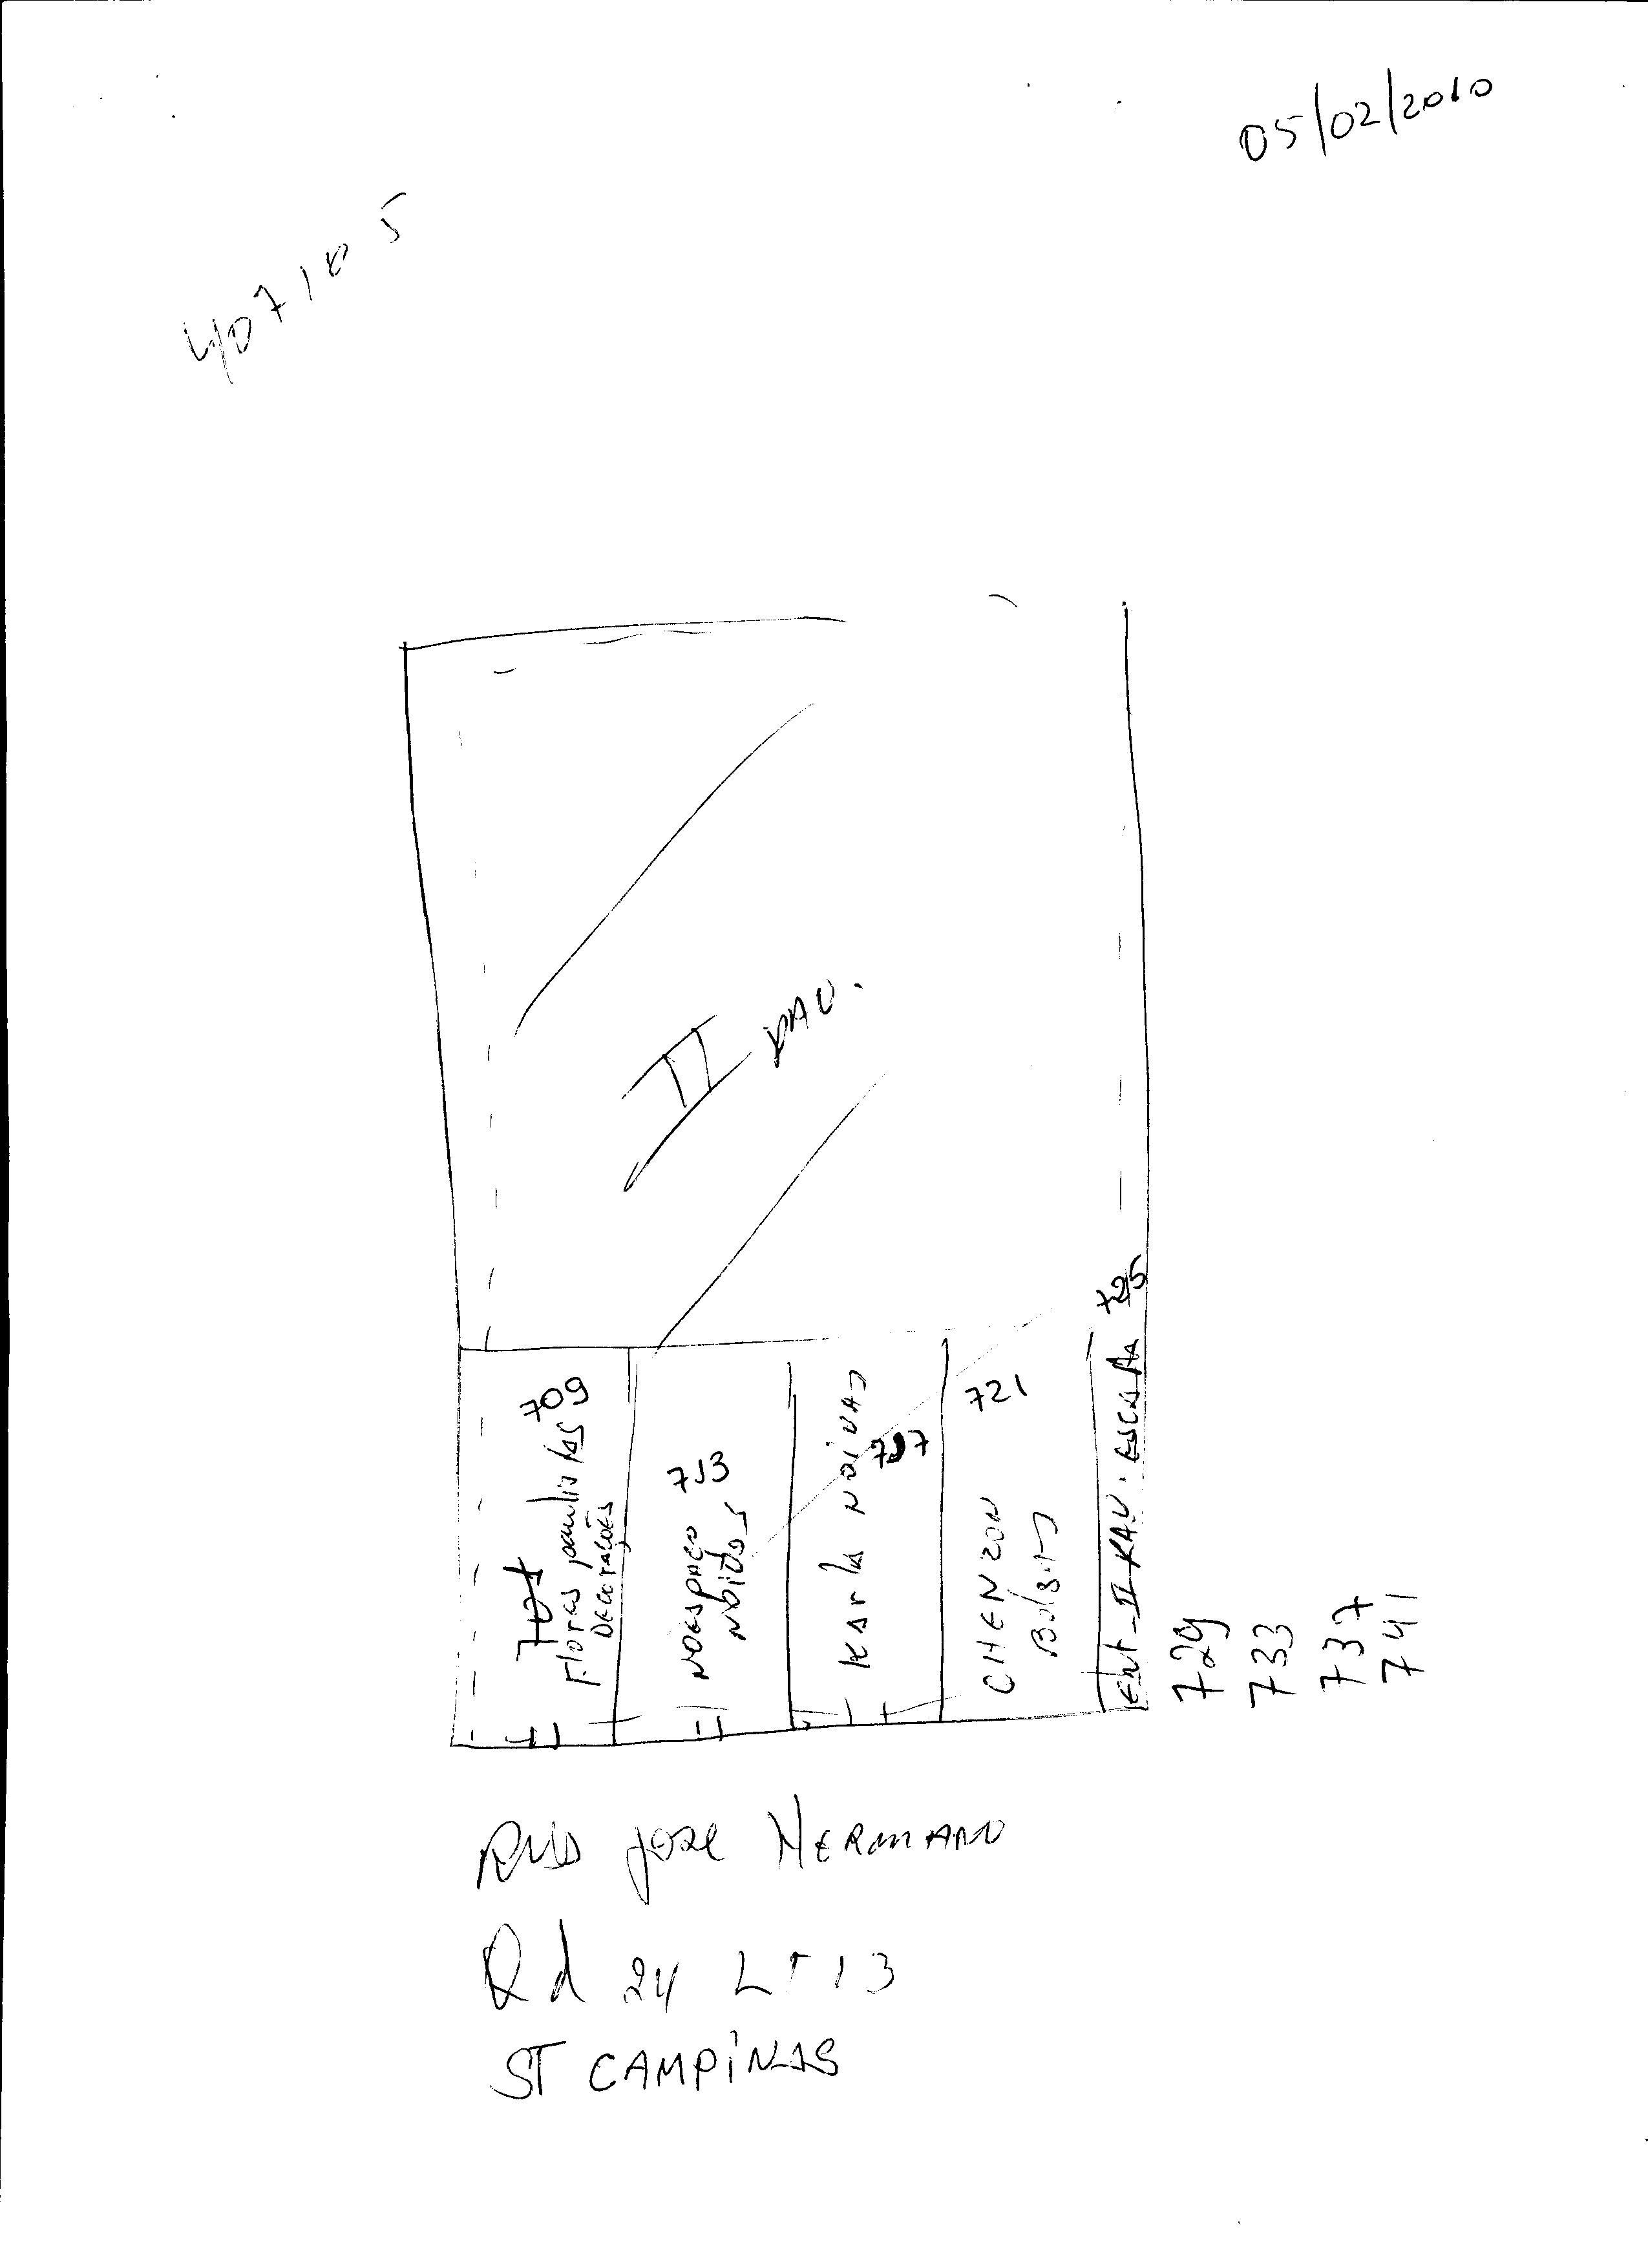 05/02/2010
407105
II PAV.
709
701
Flores paulistas
Decorações
713
Noespaço
Noivas
Karla Noivas
717
721
CHENZON
Bolsas
Ent. II PAV. escada 725
729
733
737
741
Rua José Hermano
Qd 24 LT 13
ST CAMPiNAS